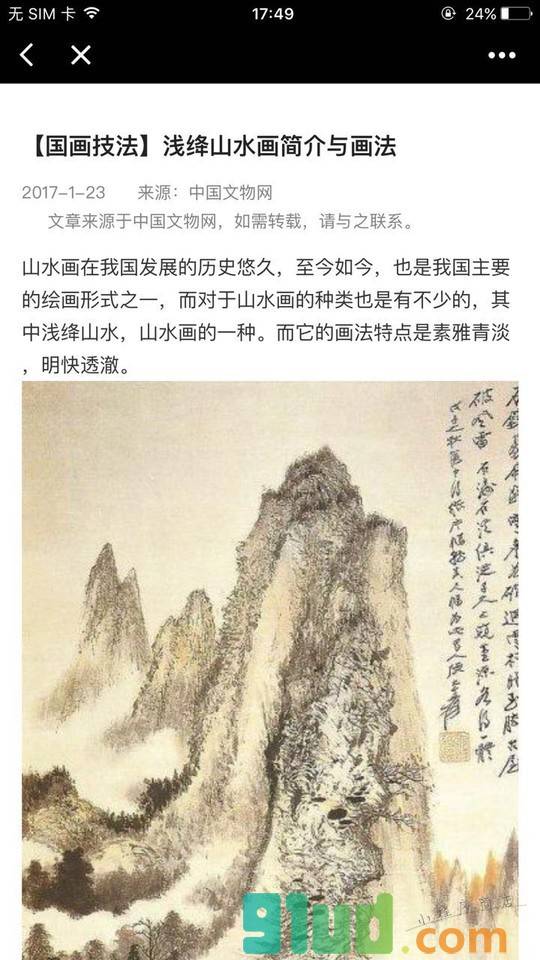 无 SIM 卡
17:49
24%
【国画技法】浅绛山水画简介与画法
2017-1-23 来源：中国文物网
文章来源于中国文物网，如需转载，请与之联系。
山水画在我国发展的历史悠久，至今如今，也是我国主要
的绘画形式之一，而对于山水画的种类也是有不少的，其
中浅绛山水，山水画的一种。而它的画法特点是素雅青淡
，明快透澈。
91ud.com